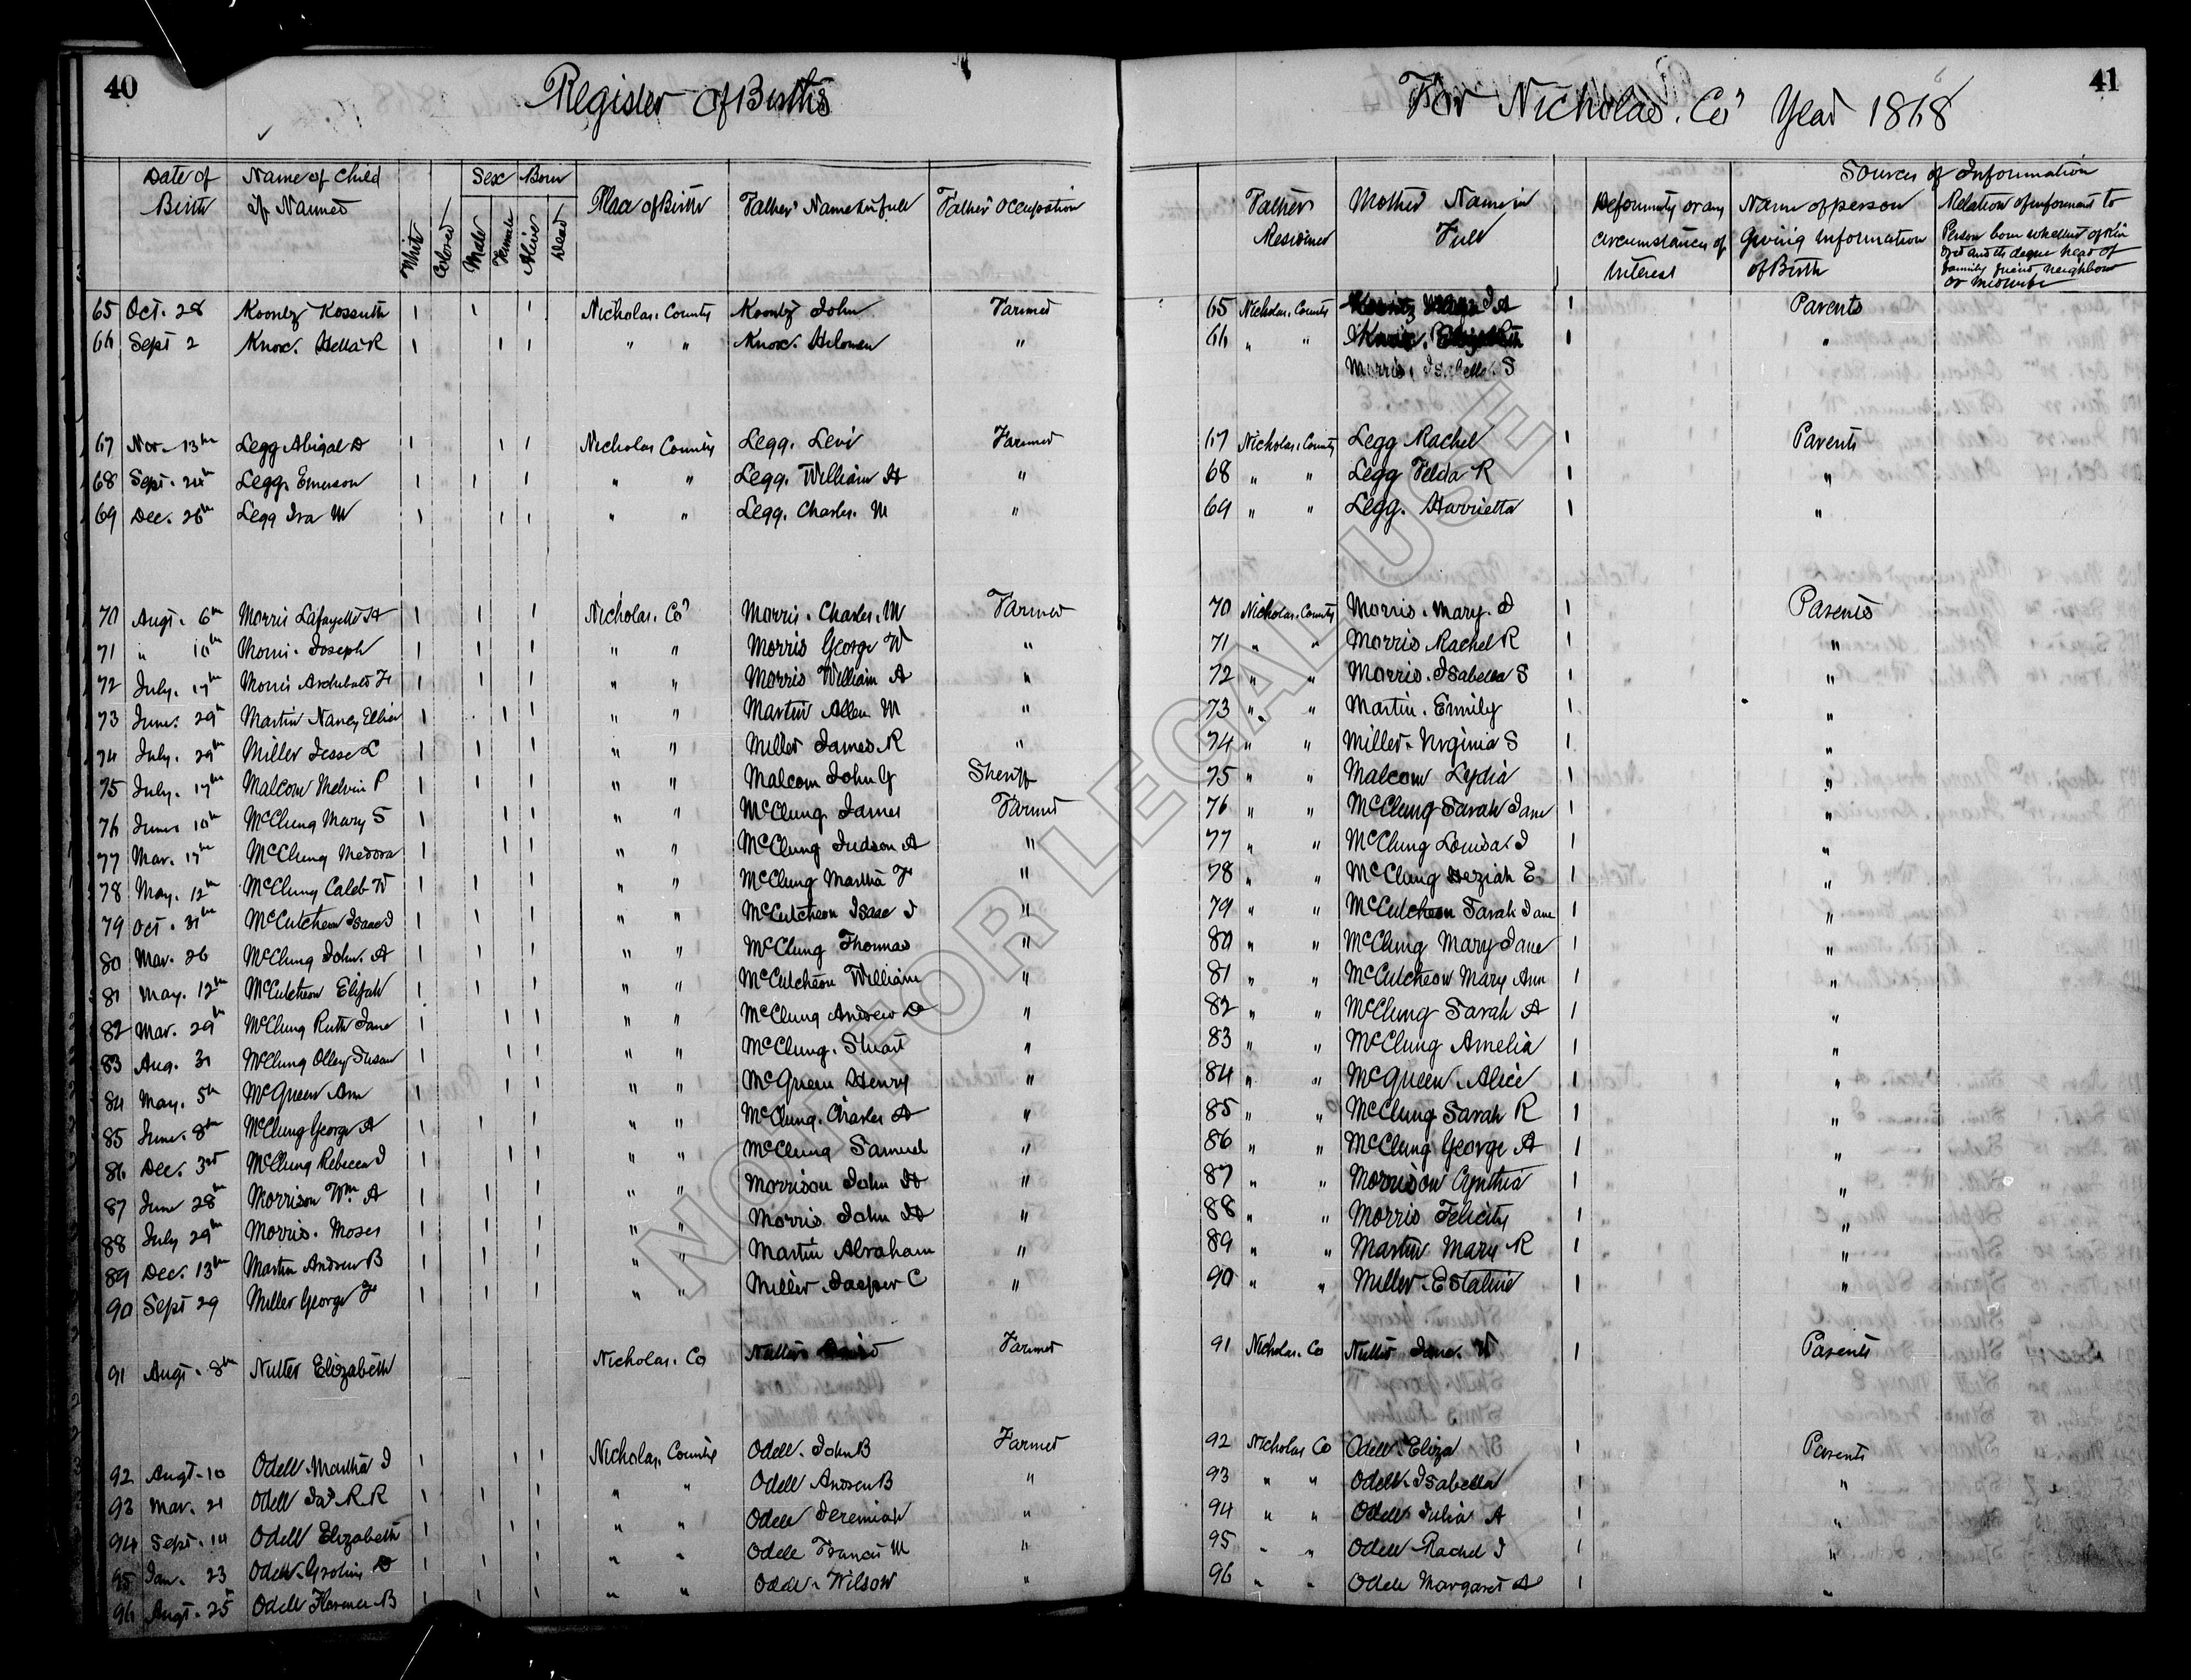 40
Register of Births
Date of Birth
Name of Child if Named
White
Colored
Sex
Male
Female
Born
Alive
Dead
Place of Birth
Father's Name in full
Father's Occupation
65 Oct. 28 Koontz Kossuth 1 1 1 Nicholas. County Koontz John Farmer
66 Sept 2 Knox. R 1 1 1 " " Knox. "
67 Nov. 13th Legg Abigal D 1 1 1 Nicholas County Legg. Levi Farmer
68 Sept. 24th Legg. Emerson 1 1 1 " " Legg. William H "
69 Dec. 26th Legg Ira M 1 1 1 " " Legg. Charles. M "
70 Augt. 6th Morris Lafayette A 1 1 1 Nicholas. Co Morris. Charles. M Farmer
71 " 10th Morris. Joseph 1 1 1 " " Morris George W "
72 July. 17th Morris Archibald F 1 1 1 " " Morris William A "
73 June. 29th Martin Nancy Ellen 1 1 1 " " Martin Allen M "
74 July. 29th Miller Jesse L 1 1 1 " " Miller James R "
75 July. 17th Malcom Melvin P 1 1 1 " " Malcom John G Sheriff
76 June 10th McClung Mary S 1 1 1 " " McClung James Farmer
77 Mar. 17th McClung Medora 1 1 1 " " McClung Judson A "
78 May. 12th McClung Caleb W 1 1 1 " " McClung Martha F "
79 Oct. 31th McCutcheon Isaac J 1 1 1 " " McCutcheon Isaac J "
80 Mar. 26 McClung John. A 1 1 1 " " McClung Thomas "
81 May. 12th McCutcheon Elijah 1 1 1 " " McCutcheon William "
82 Mar. 29th McClung Ruth Jane 1 1 1 " " McClung Andrew D "
83 Aug. 31 McClung Olley Susan 1 1 1 " " McClung. Stuart "
84 May. 5th McQueen Ann 1 1 1 " " McQueen Henry "
85 June. 8th McClung George A 1 1 1 " " McClung. Charles A "
86 Dec. 3rd McClung Rebecca J 1 1 1 " " McClung Samuel "
87 June 28th Morrison Wm. A 1 1 1 " " Morrison John H "
88 July 29th Morris. Moses 1 1 1 " " Morris John H "
89 Dec. 13th Martin Andrew B 1 1 1 " " Martin Abraham "
90 Sept 29 Miller George F 1 1 1 " " Miller. Jasper C "
91 Augt. 8th Nutter Elizabeth Nicholas. Co Nutter Farmer
92 Augt. 10 Odell. Martha J 1 1 1 Nicholas. County Odell. John B Farmer
93 Mar. 21 Odell R R 1 1 1 " " Odell Andrew B "
94 Sept. 14 Odell Elizabeth 1 1 1 " " Odell Jeremiah "
95 Jan. 23 Odell. D 1 1 1 " " Odell Francis M "
96 Augt. 25 Odell Florence B 1 1 1 " " Odell. Wilson "
41
For Nicholas. Co Year 1868
Father's Residence
Mother's Name in Full
Deformity or any circumstances of interest
Sources of Information
Name of person giving information of Birth
Relation of informant to Person born whether of kin and its degree head of family friend neighbor or midwife
65 Nicholas. County J A 1 Parents
66 " " 1 "
Morris, Isabella. S
67 Nicholas. County Legg Rachel 1 Parents
68 " " Legg Velda R 1 "
69 " " Legg. Harrietta 1 "
70 Nicholas. County Morris. Mary. J 1 Parents
71 " " Morris Rachel R 1 "
72 " " Morris. Isabella S 1 "
73 " " Martin. Emily 1 "
74 " " Miller. Virginia S 1 "
75 " " Malcom Lydia 1 "
76 " " McClung Sarah Jane 1 "
77 " " McClung Louisa. J 1 "
78 " " McClung Keziah E 1 "
79 " " McCutcheon Sarah Jane 1 "
80 " " McClung Mary Jane 1 "
81 " " McCutcheon Mary Ann 1 "
82 " " McClung Sarah A 1 "
83 " " McClung Amelia 1 "
84 " " McQueen. Alice 1 "
85 " " McClung Sarah R 1 "
86 " " McClung George A 1 "
87 " " Morrison Cynthia 1 "
88 " " Morris Felicity 1 "
89 " " Martin Mary R 1 "
90 " " Miller. Estaline 1 "
91 Nicholas. Co Nutter Jane. W 1 Parents
92 Nicholas Co Odell. Eliza 1 Parents
93 " " Odell. Isabella 1 "
94 " " Odell Julia A 1 "
95 " " Odell Rachel J 1 "
96 " " Odell Margaret A 1 "
NOT FOR LEGAL USE